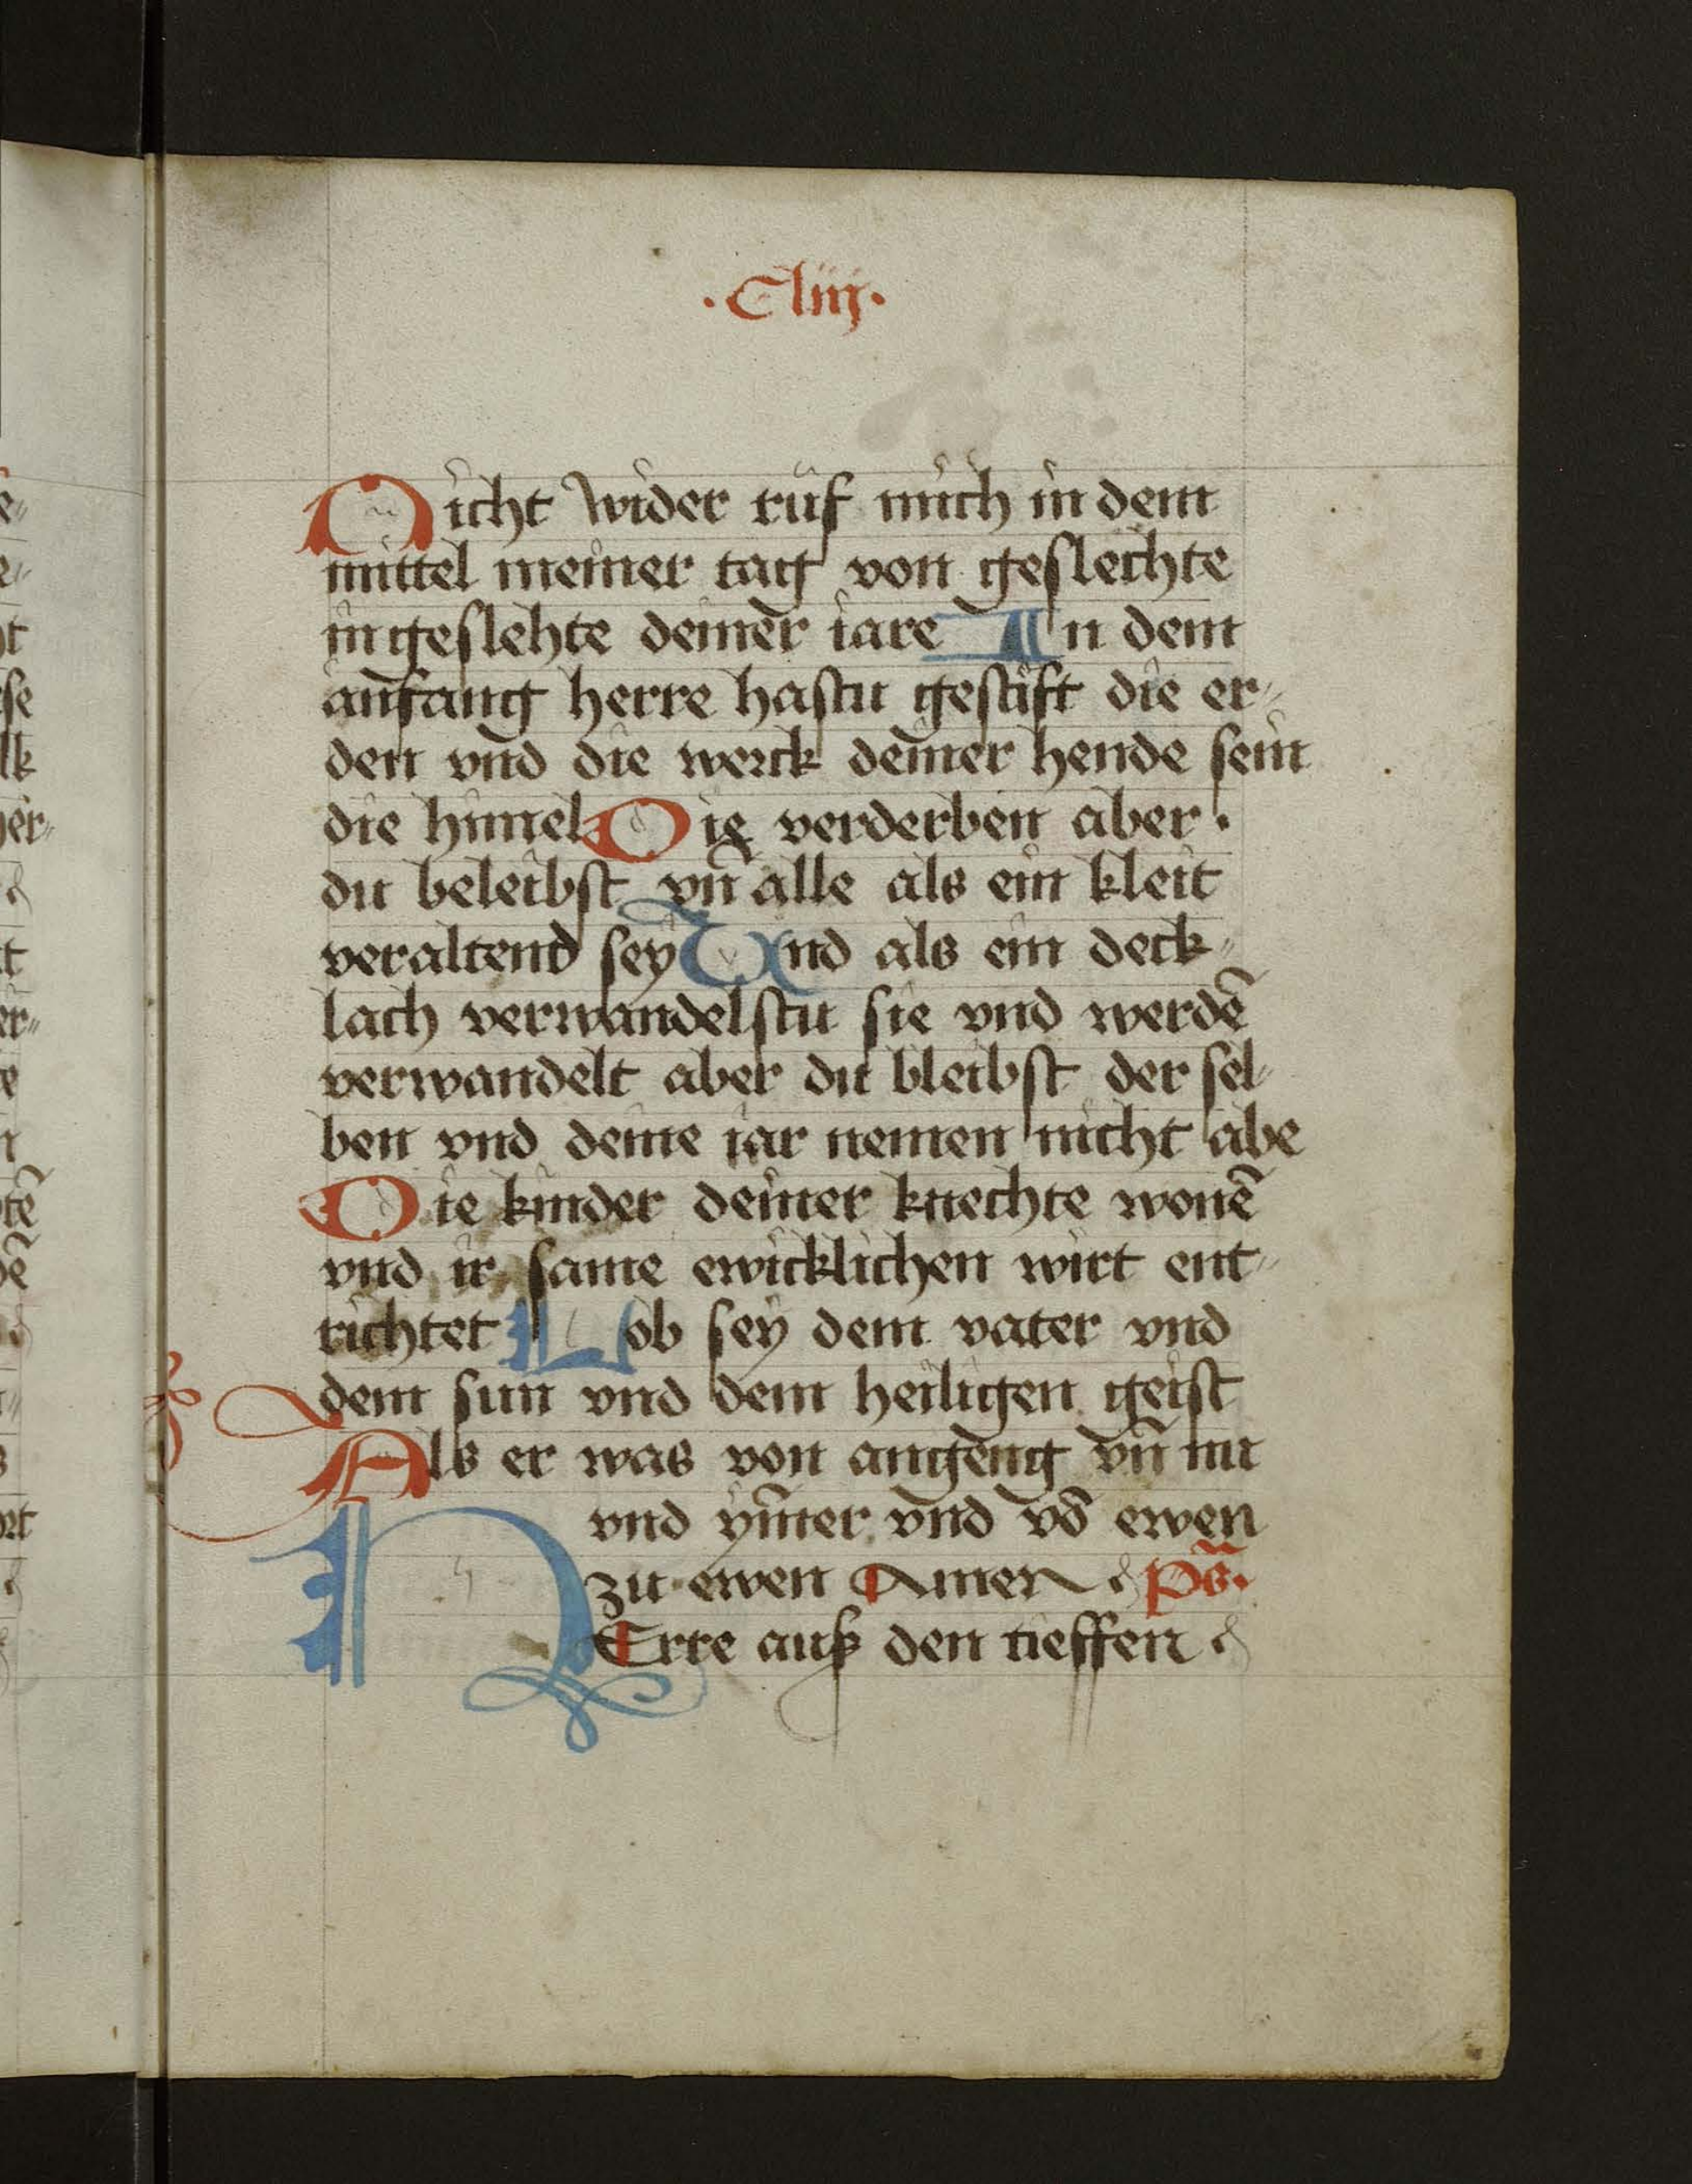 ·Cliij·
Nicht wider ruf mich in dem
mittel meiner tag von geslechte
in geslehte deiner iare In dem
anfang herre hastu gestift die er⸗
den vnd die werck deiner hende sein
die himel Die verderben aber ·
du beleibst vn̄ alle als ein kleit
veraltend sey Vnd als ein deck⸗
lach verwandelstu sie vnd werdē
verwandelt aber du bleibst der sel⸗
ben vnd deine iar nemen nicht abe
Die kinder deiner knechte wonē
vnd ir same ewicklichen wirt ent⸗
richtet Lob sey dem vater vnd
dem sun vnd dem heiligen geist
Als er was von angeng vn̄ nu
vnd ym̄er vnd vō ewen
zu ewen Amen p̄s·
HErre auß den tieffen